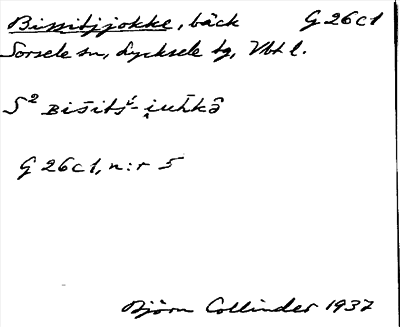 Bissitjjokke, bäck G 26c1
Sorsele sn, Lycksele tg, Vbt l.
S² ʙišitš́-i̯uh̄kɔ̂
G 26c1, n:r 5
Björn Collinder 1937